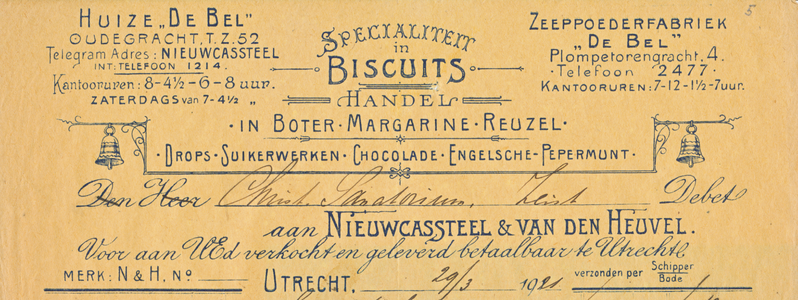 5
HUIZE „DE BEL"
OUDEGRACHT, T.Z. 52
Telegram Adres: NIEUWCASSTEEL
INT: TELEFOON 1214.
Kantooruren: 8-4½-6-8 uur.
ZATERDAGS van 7-4½ „
SPECIALITEIT
in
BISCUITS
HANDEL
IN BOTER · MARGARINE · REUZEL ·
· DROPS · SUIKERWERKEN · CHOCOLADE · ENGELSCHE · PEPERMUNT ·
ZEEPPOEDERFABRIEK
„DE BEL"
Plompetorengracht. 4.
· Telefoon 2477 ·
KANTOORUREN: 7-12-1½-7uur.
Den Heer Christ. Sanatorium, Zeist Debet
aan NIEUWCASSTEEL & VAN DEN HEUVEL.
Voor aan UEd verkocht en geleverd betaalbaar te Utrecht.
MERK: N & H, No
UTRECHT, 29/3 1921
verzonden per Schipper
Bode